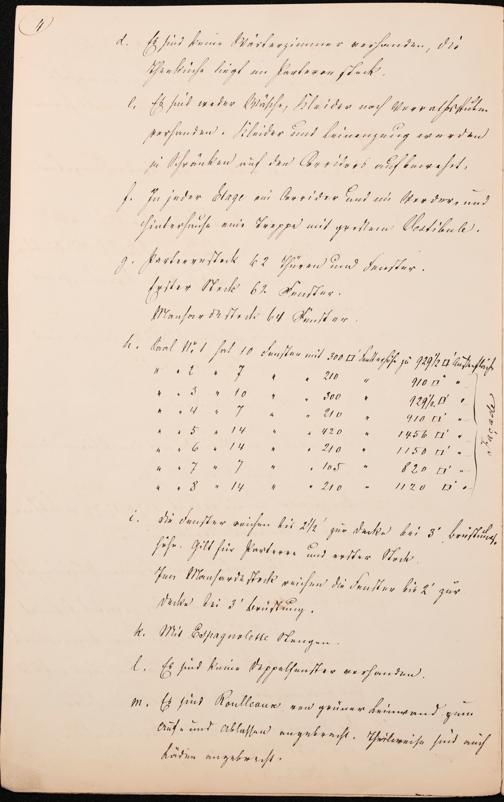 4
d. Es sind keine Wärterzimmer vorhanden, die
Theeküche liegt im Parterrestock.
e. Es sind weder Wäsche, Kleider noch Vorrathsstuben
vorhanden. Kleider und Leinenzeug werden
in Schränken auf den Corridors aufbewahrt.
f. In jeder Etage ein Corridor und im Vorder- und
Hinterhause eine Treppe mit großem Vestibule.
g. Parterrestock 62 Thüren und Fenster.
Erster Stock 62 Fenster.
Mansardestock 64 Fenster.
h. Saal No 1 hat 10 Fenster mit 300 □' zu 929 1/2 □'
" " 2 " 7 " " 210 " 910 □' "
" " 3 " 10 " " 300 " 929 1/2 □' "
" " 4 " 7 " " 210 " 910 □' "
" " 5 " 14 " " 420 " 1456 □' "
" " 6 " 14 " " 210 " 1150 □' "
" " 7 " 7 " " 105 " 820 □' "
" " 8 " 14 " " 210 " 1120 □' "
i. Die Fenster reichen bis 2 1/2' zur Decke bei 3' Brüstungs-
höhe. Gilt für Parterre und erster Stock.
Im Mansardestock reichen die Fenster bis 2' zur
Decke bei 3' Brüstung.
k. Mit Espagnolette Stangen.
l. Es sind keine Doppelfenster vorhanden.
m. Es sind Rouleaux von grüner Leinwand zum
Auf- und Ablassen angebracht. Theilweise sind auch
Läden angebracht.